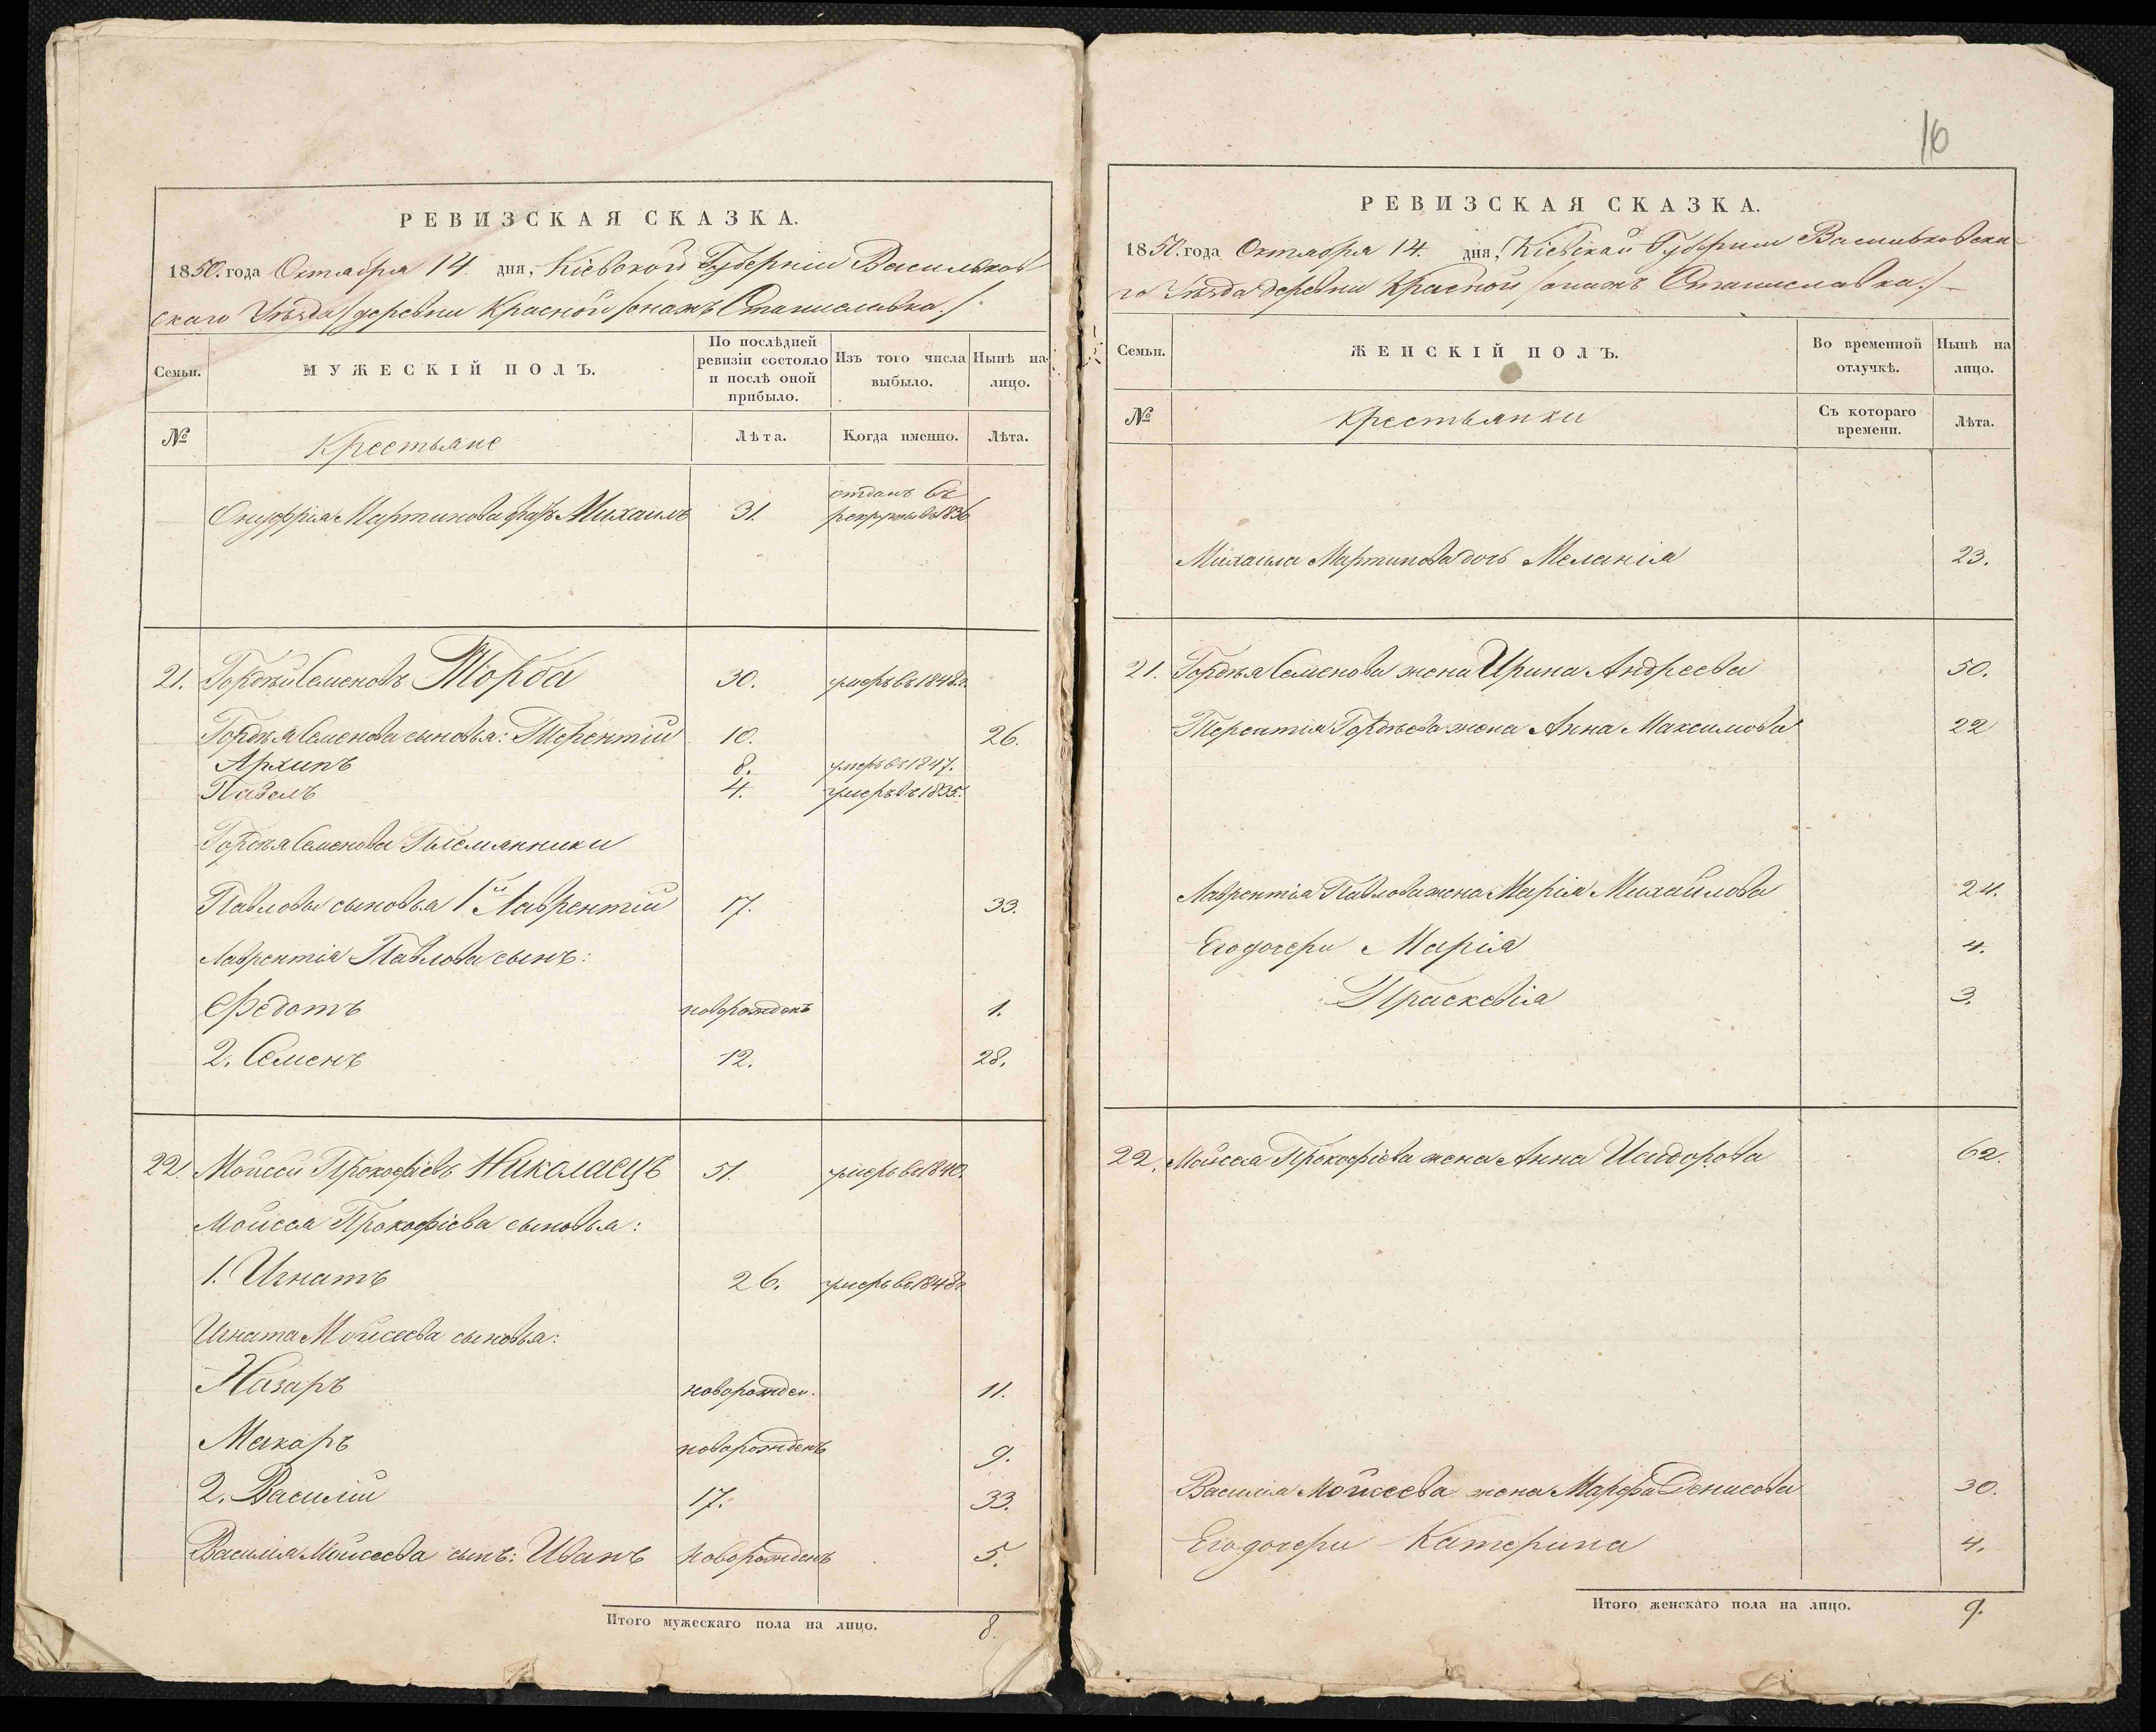 РЕВИЗСКАЯ СКАЗКА.
1850. года Октября 14. дня, Кіевской Губерніи Васильков
скаго Уѣзда деревни Красной /онажъ Станиславка./
Семьи.
МУЖЕСКІЙ ПОЛЪ.
По послѣдней ревизіи состояло и послѣ оной прибыло.
Изъ того числа выбыло.
Нынѣ на-лицо.
№
Крестьяне
Лѣта.
Когда именно.
Лѣта.
Онуфрія Мартинова братъ Михаилъ 31. отданъ въ рекруты въ 1836
21. Гордѣй Семеновъ Торба 30. умеръ въ 1848г.
Гордѣя Семенова сыновья: Терентій 10. 26.
Архипъ 8. умеръ въ 1847.
Павелъ 4. умеръ въ 1835.
Гордѣя Семенова Племянники
Павловы сыновья 1й Лаврентій 17. 33.
Лаврентія Павлова сынъ:
Федотъ новорожденъ 1.
2. Семенъ 12. 28.
22. Мойсей Прокофіевъ Николаецъ 51. умеръ въ 1840.
Мойсея Прокофіева сыновья:
1. Игнатъ 26. умеръ въ 1848г
Игната Мойсеева сыновья:
Назаръ новорожден. 11.
Макаръ новорожденъ 9.
2. Василій 17. 33.
Василія Мойсеева сынъ: Иванъ новорожденъ 5.
Итого мужескаго пола на лицо. 8.
16
РЕВИЗСКАЯ СКАЗКА.
1850. года Октября 14. дня, Кіевской Губерніи Васильковска-
го Уѣзда деревни Красной /онажъ Станиславка./
Семьи.
ЖЕНСКІЙ ПОЛЪ.
Во временной отлучкѣ.
Нынѣ на лицо.
№
Крестьянки
Съ котораго времени.
Лѣта.
Михаила Мартинова дочь Меланія 23.
21. Гордѣя Семенова жена Ирина Андреева 50.
Терентія Гордѣева жена Анна Максимова 22
Лаврентія Павлова жена Марія Михайлова 24.
Его дочери Марія 4.
Праскевія 3.
22. Мойсея Прокофіева жена Анна Исидорова 62.
Василія Мойсеева жена Марфа Денисова 30.
Его дочери Катерина 4.
Итого женскаго пола на лицо. 9.